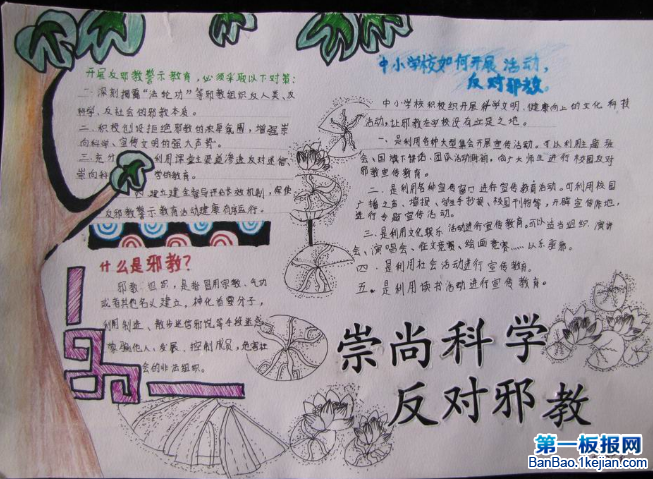 开展反邪教警示教育,必须采取以下对策:
一 深刻揭露“法轮功”等邪教组织反人类、反
科学、反社会的邪教本质。
二.积极创设拒绝邪教的 氛围,增强崇
尚科学、宣传文明的强大声势。
三.充分 利用课堂主渠道渗透反对迷信,
崇尚科学的教育。
四.建立健全督导评价 机制,保使
反邪教警示教育活动健康有序运行。
什么是邪教?
邪教组织,是指冒用宗教、气功
或者其他名义建立,神化首要分子,
利用制造、散布迷信邪说等手段迷惑、
蒙骗他人,发展、控制成员,危害社
会的非法组织。
中小学校如何开展活动,
反对邪教。
中小学校积极开展 文明、健康向上的文化科技
活动,让邪教在学校没有立足之地。
一.是利用各种大型集会开展宣传活动。可以利用主题班
会、国旗下讲话、团队活动 ,向广大师生进行校园反对
邪教宣传教育。
二.是利用 宣传窗口进行宣传教育活动。可利用校园
广播之声、墙报、 手抄报、校园刊物等,开辟宣传阵地,
进行专题宣传活动。
三.是利用文化娱乐活动进行宣传教育。可以适当组织 演讲
会、演唱会、征文竞赛、绘画竞赛……以乐 。
四.是利用社会活动进行宣传教育。
五.是利用读书活动进行宣传教育。
崇尚科学
反对邪教
第一板报网
BanBao.1kejian.com